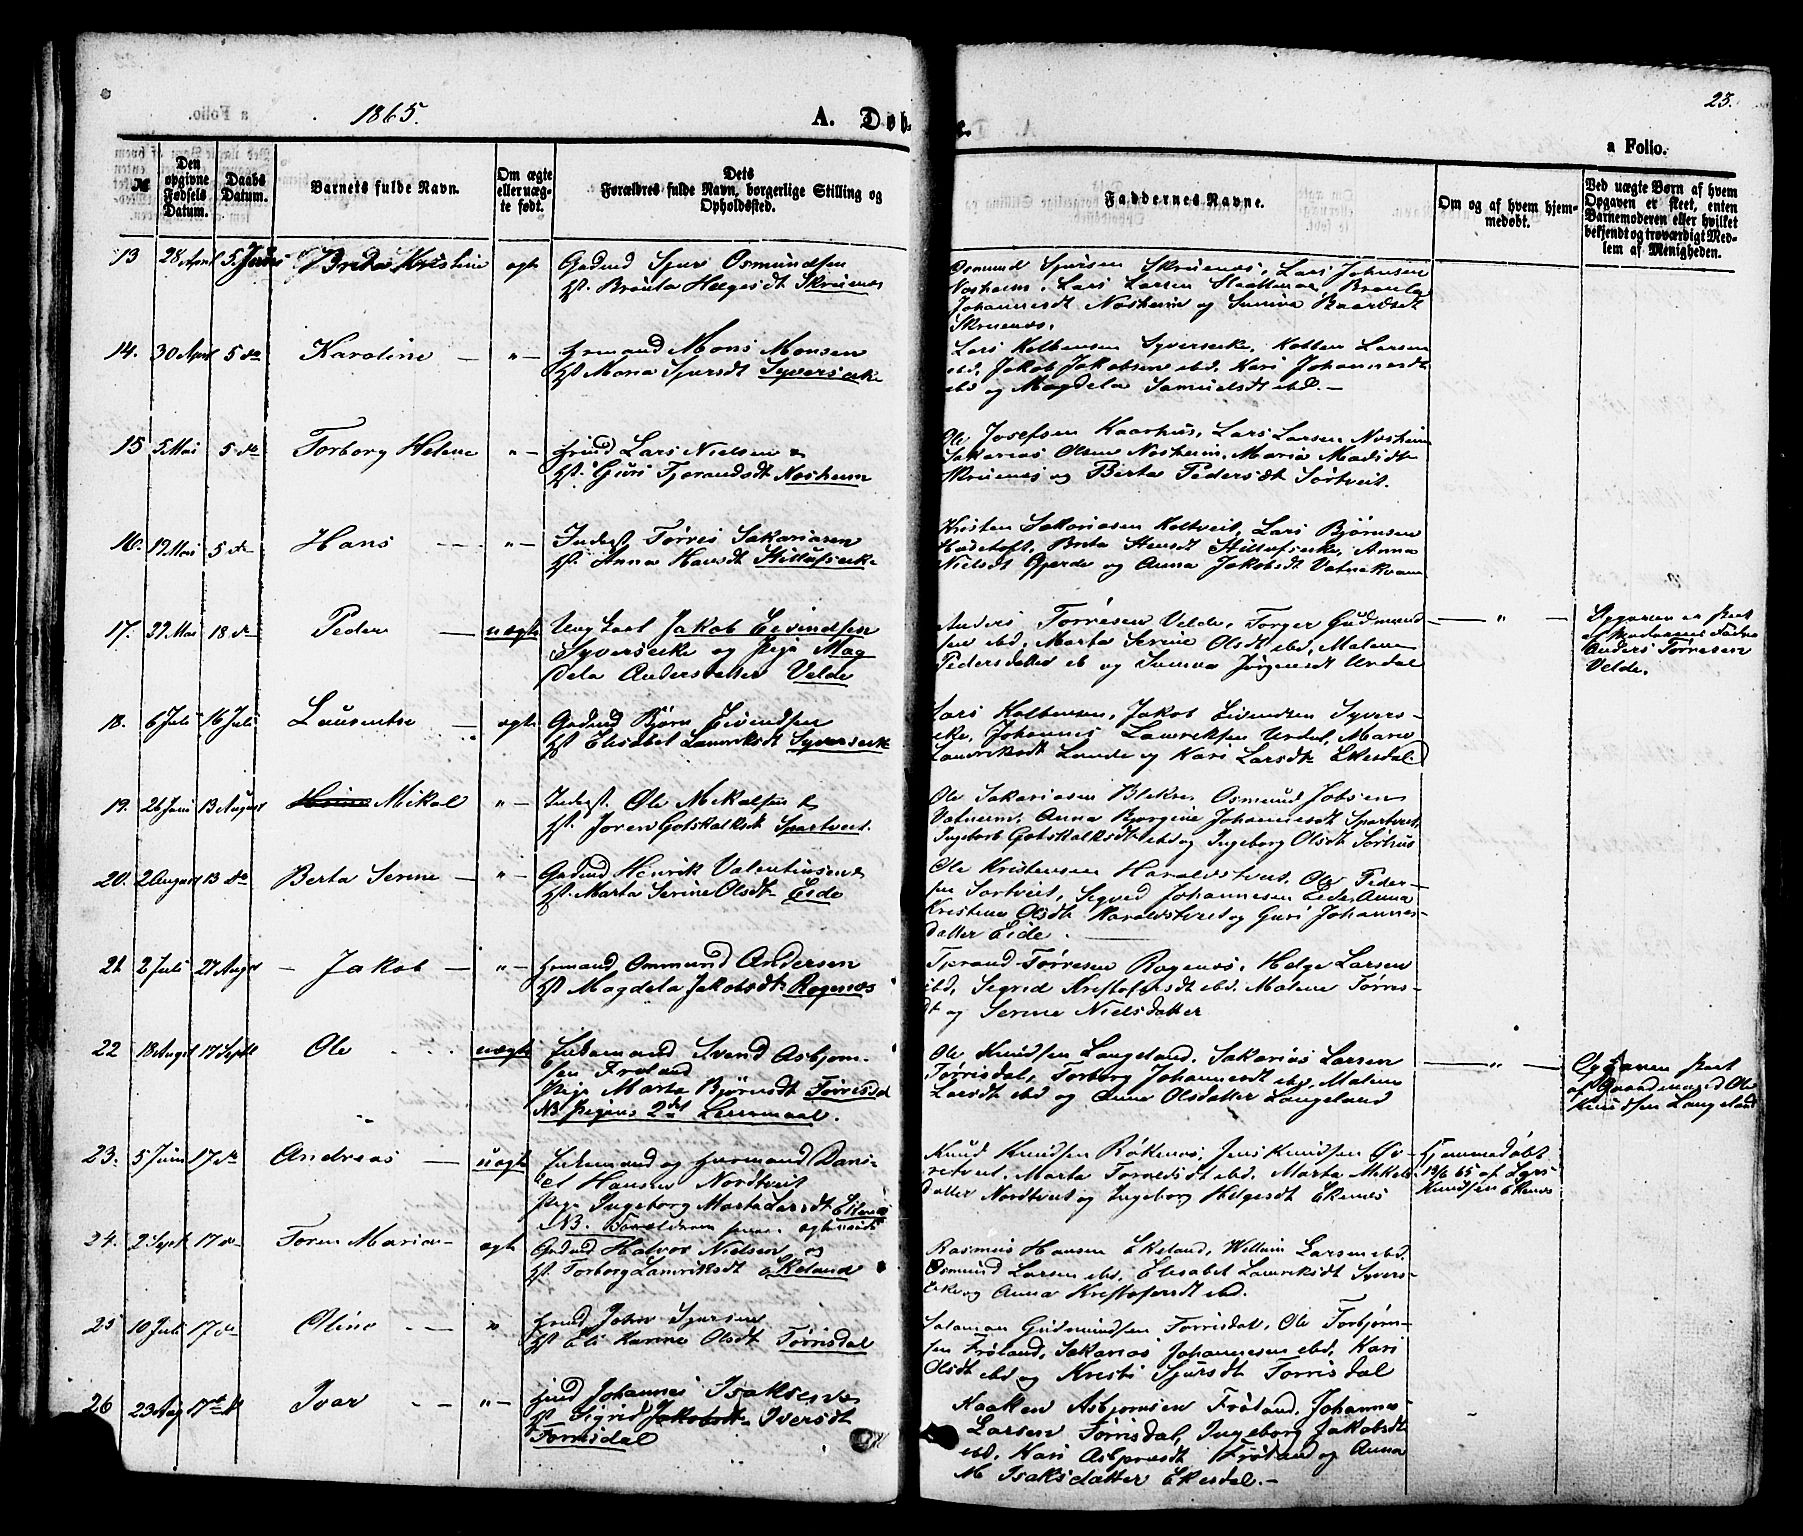 1865.
A. Døb-
e.
23.
a Folio.
№
Den opgivne Fødsels Datum.
Daabs Datum.
Barnets fulde Navn.
Om ægte eller uægte født.
Dets Forældres fulde Navn, borgerlige Stilling og Opholdssted.
Faddernes Navne.
Om og af hvem hjemmedøbt.
Ved uægte Børn af hvem Opgaven er skeet, enten Barnemoderen eller hvilket bekjendt og troværdigt Medlem af Menigheden.
13 28 April 5. Kristine ægte Gdmd Sjur Osmundsen
Hst. Brønla Helgesdt Skruenæs
Osmund Sjursen Skruenæs, Lars Johnsen
Nosheim, Lars Larsen
Johannesdt Nosheim og Baardsdt
Skruenæs.
14. 30 April 5 do Karoline — „ — Huusmand Mons Monsen
Hst Maria Sjursdt Syverseike
Lars Kolbensen Syverseike, Kolben Larsen
ebd, Jakob Jakobsen ebd. Kari Johannesdt
ebd og Magdela Samuelsdt ebd. —
15 5 Mai 5 do Torborg Helene „ — Lars Nielsen &
Hst. Guri Tjorandsdt Nosheim
Ole Josefsen Kaarhus, Lars Larsen Nosheim
Sakarias Olsen Nosheim, Maria Madsdt
Skruenæs og Berta Pedersdt Sørtveit.
16. 19 Mai 5 do Hans — „ — Inderst Tørres Sakariasen
Hst. Anna Hansdt
Kristen Sakariasen Koltveit, Lars Bjørnsen
Anna
Nielsdt Gjerde og Anna Jakobsdt Vatnekvam
17. 22 Mai 18 do Peder — uægte Ungkarl Jakob Eivindsen
Syverseike og Pige Mag
dela Andersdatter Velde
Anders Tørresen Velde, Torger Gudmund
sen ebd, Marta Serine Olsdt ebd, Malene
Pedersdatter eb og Jørgensdt Urdal
— „ —
Opgaven er skeet
af Moderens Fader
Anders Tørresen
Velde.
18. 6 Juli 16 Juli Lausentse — ægte Gdmd Bjørn Eivendsen
Hst Elisabet Lauriksdt Syverseike
Lars Kolbensen, Jakob Eivendsen Syvers-
eike, Johannes Lauriksen Urdal, Marie
Lauriksdt Lunde og Kari Larsdt Ekesdal.
19. 26 Juni 13 August Mikal „ — Inderst. Ole Mikalsen &
Hst. Joren Gotskalksdt Sportveit.
Ole Sakariasen Blekre, Osmund Jobsen
Vatneim, Anna Bjorgine Johannesdt Spartveit,
Ingeborg Gotskalksdt ebd og Ingeborg Olsdt Sørhus
20. 2 August 13 do Berta Serine — „ — Gdmd Henrik Valentinsen &
Hst. Marta Serine Olsdt Eide
Ole Kristensen Haraldstveit, Ole Peder-
sen Sortveit, Sigved Johannesen Eide, Anna
Kristina Olsdt Haraldstveit og Guri Johannes-
datter Eide.
21 2 Juli 27 Augst — Jakob — „ — Huusmand Ommund Andersen
Hst Magdela Jakobsdt Rogenæs
Tjerand Tørresen Rogenæs, Helge Larsen
ebd, Sigrid Kristofersdt ebd. Malene Tørres-
dt og Serine Nielsdatter
22 18 Augst 17 Septb Ole uægte Enkemand Svend Asbjørn-
sen Frøland
Pige Marta Bjørnsdt Tørrisdal
NB Pigens 2det Leiermaal.
Ole Knudsen Langeland, Sakarias Larsen
Tørrisdal, Torborg Johannesdt ebd, Malene
Larsdt ebd og Anna Olsdatter Langeland
— „ —
Opgaven skeet
af Gaardmand Ole
Knudsen Langeland
23. 5 Juni 17 do Andreas — uægte Enkemand og Huusmand Dani-
el Hansen Nordtveit
Pige Ingeborg Marta Larsdt
NB. Forældrene senere ægteviede
Knud Knudsen Røkenæs, Jens Knudsen Øv
retveit, Marta Torresdt ebd. Marta Mikels-
datter Nordtveit og Ingeborg Helgesdt Ekenes
Hjemmedøbt
13/6 65 af Lars
Knudsen Ekenæs
24. 2 Sept 17 do Toren Maria — ægte Gdmd Halvor Nielsen og
Hst. Torborg Lauriksdt Ekeland
Rasmus Hansen Ekeland, Willum Larsen ebd.
Osmund Larsen ebd, Elisabet Lauriksdt Syvers-
eike og Anna Kristofersdt ebd.
25 10 Juli 17 do Oline — „ John Sjursen
Hst Eli Karine Olsdt Tørrisdal
Salamon Gudmundsen Torrisdal, Ole Torbjørn-
sen Frøland, Sakarias Johannesen ebd, Kari
Olsdt ebd og Kristi Sjursdt Torrisdal
26 23 Aug 17 do Ivar — „ — Johannes Isaksen &
Hst Sigrid Jakobsdt Iversdt
Torrisdal
Haaken Asbjornsen Frøland, Johannes
Larsen Tørrisdal, Ingeborg Jakobsdt
ebd, Kari Asbjørnsdt Frøland og Anna
M Isaksdatter Ekesdal. —